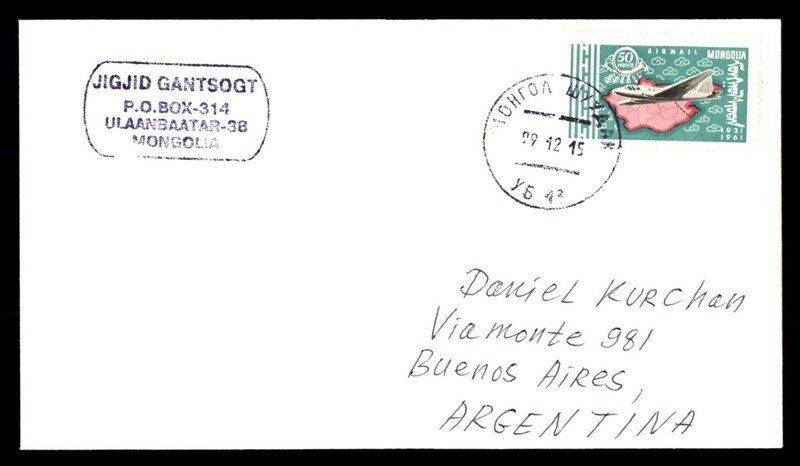 JIGJID GANTSOGT
P.O.BOX-314
ULAANBAATAR-38
MONGOLIA
50
AIRMAIL MONGOLIA
1921
1961
МОНГОЛ ШУУДАН
99 12 15
УБ 13
Daniel Kurchan
Viamonte 981
Buenos Aires,
ARGENTINA